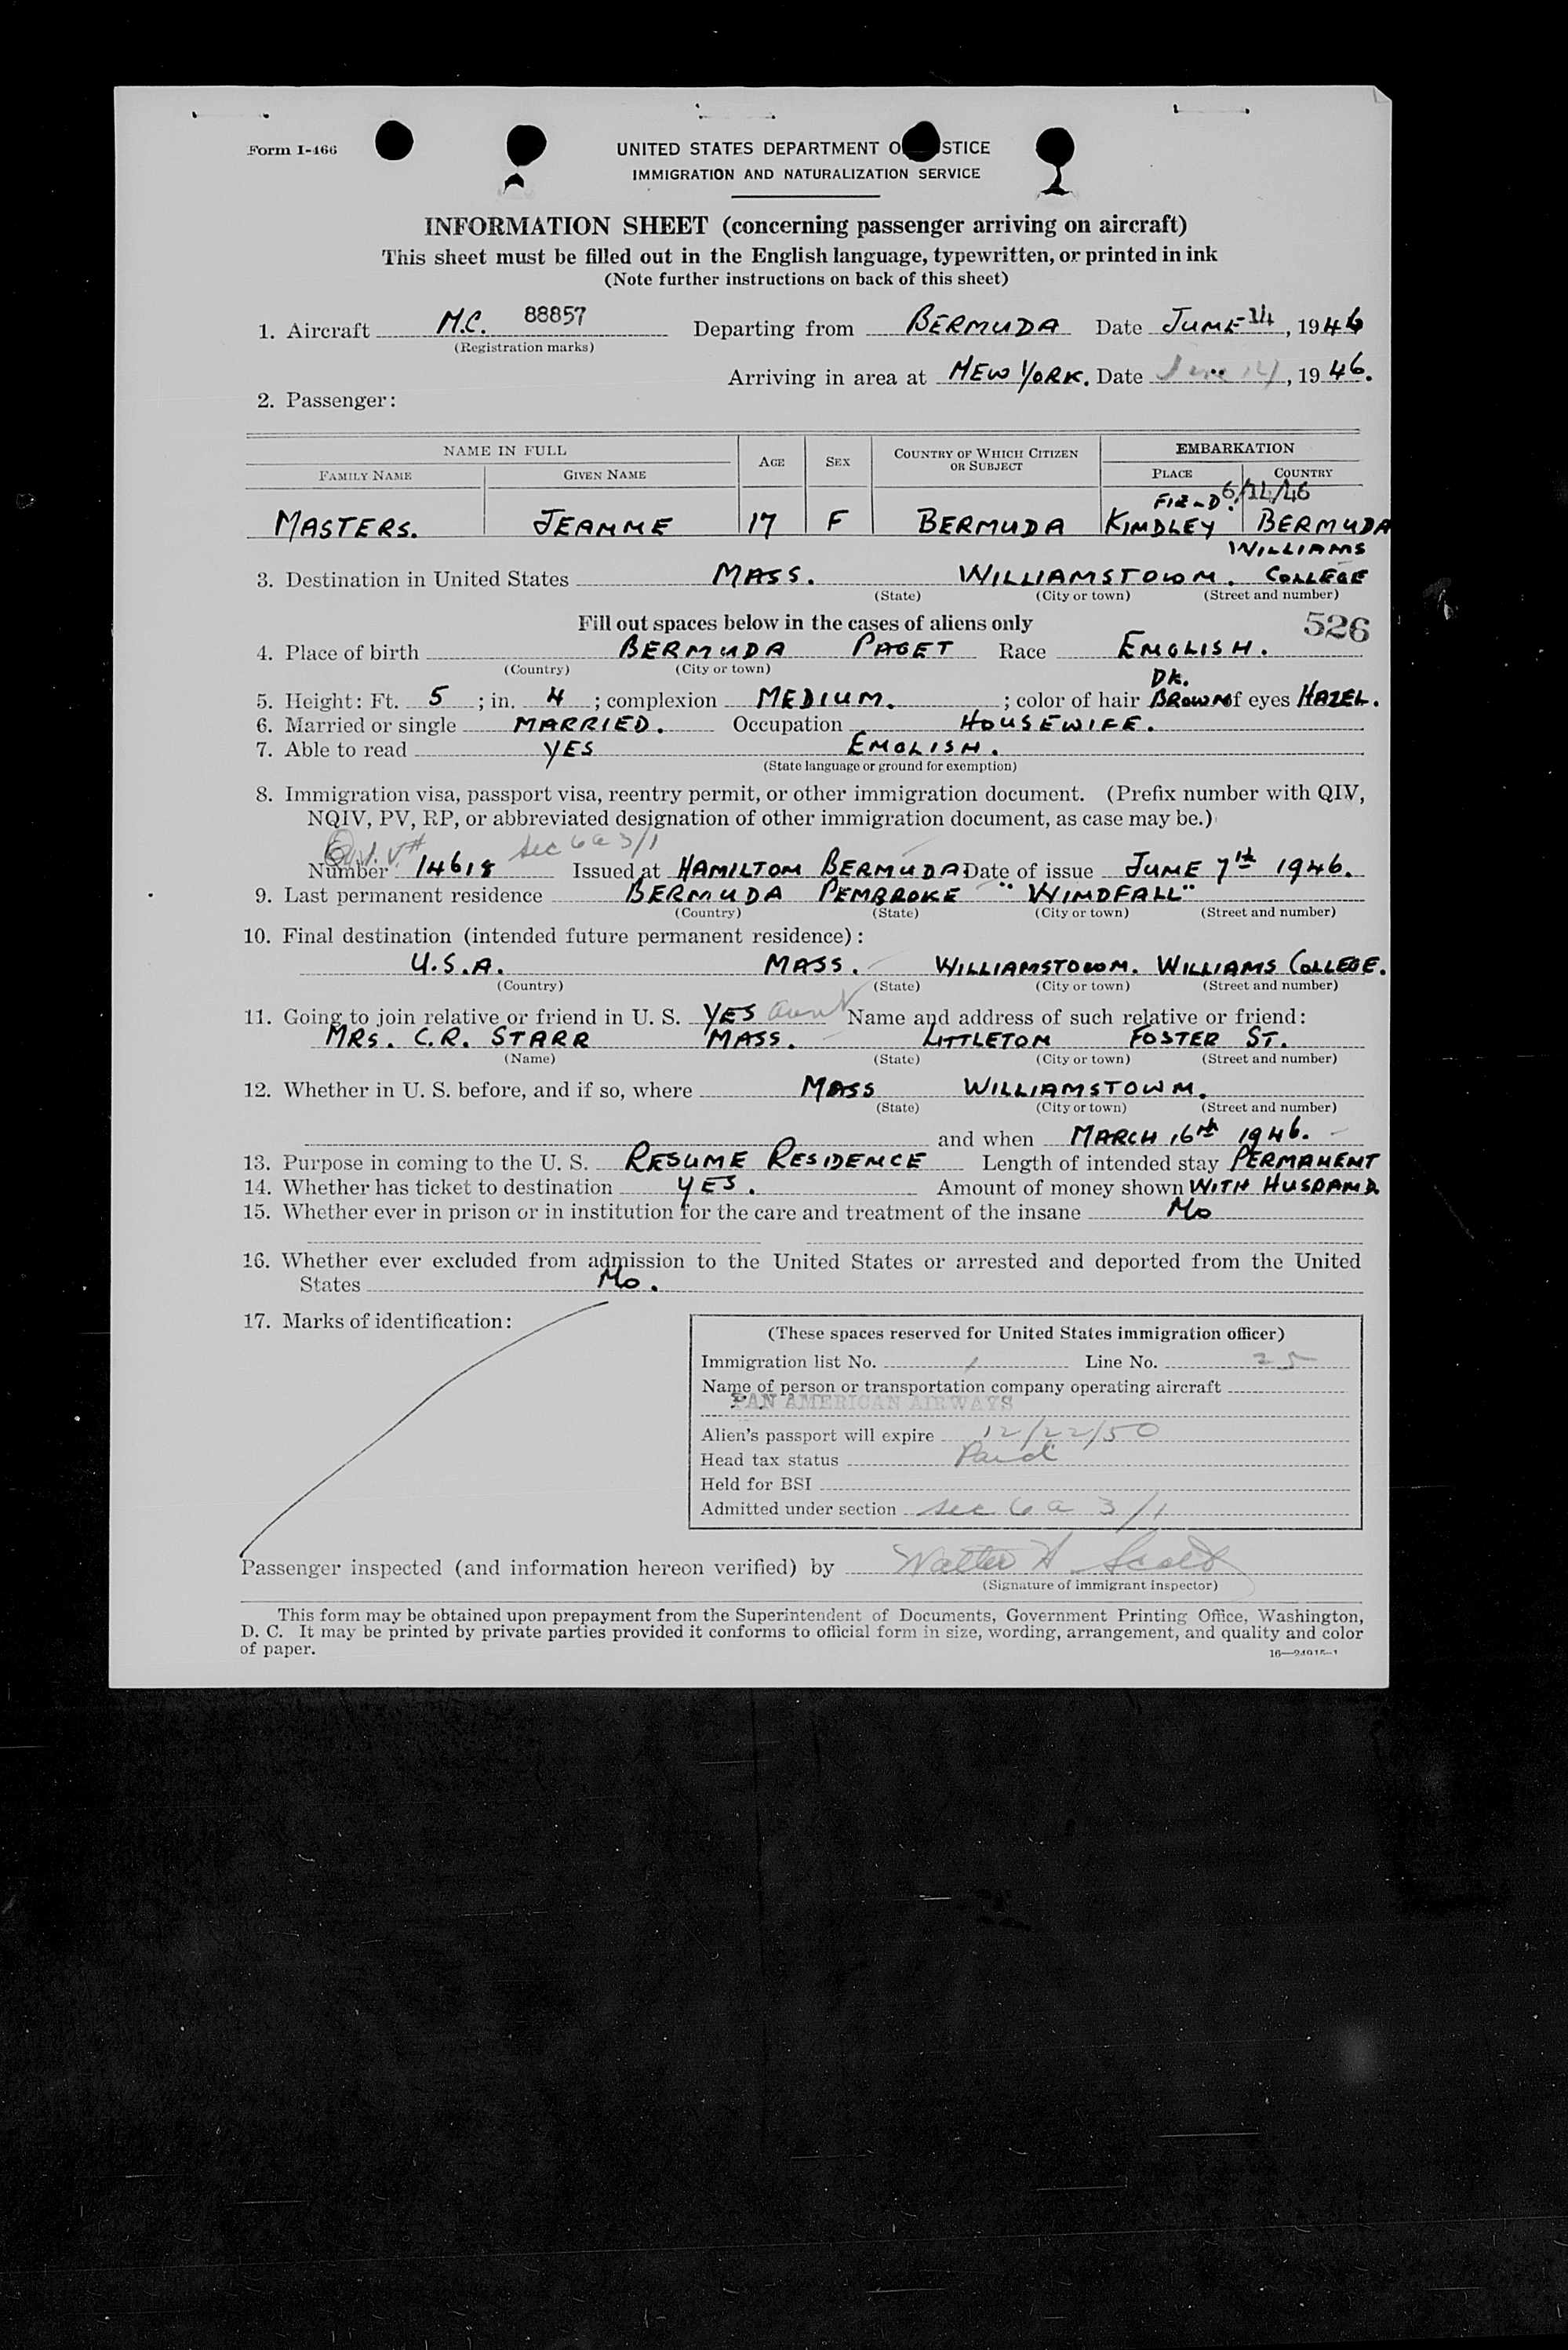 Form I-466
UNITED STATES DEPARTMENT O STICE
IMMIGRATION AND NATURALIZATION SERVICE
INFORMATION SHEET (concerning passenger arriving on aircraft)
This sheet must be filled out in the English language, typewritten, or printed in ink
(Note further instructions on back of this sheet)
1. Aircraft N.C. 88857 Departing from BERMUDA Date JUNE 14, 1946
(Registration marks)
Arriving in area at NEW YORK. Date June 14, 1946.
2. Passenger:
NAME IN FULL AGE SEX COUNTRY OF WHICH CITIZEN OR SUBJECT EMBARKATION
FAMILY NAME GIVEN NAME PLACE COUNTRY
FIELD. 6/14/46
MASTERS. JEANNE 17 F BERMUDA KINDLEY BERMUDA
WILLIAMS
3. Destination in United States MASS. WILLIAMSTOWN. COLLEGE
(State) (City or town) (Street and number)
Fill out spaces below in the cases of aliens only 526
4. Place of birth BERMUDA PAGET Race ENGLISH.
(Country) (City or town)
DK.
5. Height: Ft. 5; in. 4; complexion MEDIUM.; color of hair BROWN of eyes HAZEL.
6. Married or single MARRIED. Occupation HOUSEWIFE.
7. Able to read YES ENGLISH.
(State language or ground for exemption)
8. Immigration visa, passport visa, reentry permit, or other immigration document. (Prefix number with QIV,
NQIV, PV, RP, or abbreviated designation of other immigration document, as case may be.)
Q.I.V.# sec 6a 3/1
Number 14618 Issued at HAMILTON BERMUDA Date of issue JUNE 7th 1946.
9. Last permanent residence BERMUDA PEMBROKE "WINDFALL"
(Country) (State) (City or town) (Street and number)
10. Final destination (intended future permanent residence):
U.S.A. MASS. WILLIAMSTOWN. WILLIAMS COLLEGE.
(Country) (State) (City or town) (Street and number)
11. Going to join relative or friend in U. S. YES aunt Name and address of such relative or friend:
MRS. C.R. STARR MASS. LITTLETON FOSTER ST.
(Name) (State) (City or town) (Street and number)
12. Whether in U. S. before, and if so, where MASS WILLIAMSTOWN.
(State) (City or town) (Street and number)
and when MARCH 16th 1946.
13. Purpose in coming to the U. S. RESUME RESIDENCE Length of intended stay PERMANENT
14. Whether has ticket to destination YES. Amount of money shown WITH HUSBAND
15. Whether ever in prison or in institution for the care and treatment of the insane No
16. Whether ever excluded from admission to the United States or arrested and deported from the United
States No.
17. Marks of identification:
(These spaces reserved for United States immigration officer)
Immigration list No. 1 Line No. 25
Name of person or transportation company operating aircraft
PAN AMERICAN AIRWAYS
Alien's passport will expire 12/22/50
Head tax status Paid
Held for BSI
Admitted under section sec 6a 3/1
Passenger inspected (and information hereon verified) by Walter H Scott
(Signature of immigrant inspector)
This form may be obtained upon prepayment from the Superintendent of Documents, Government Printing Office, Washington,
D. C. It may be printed by private parties provided it conforms to official form in size, wording, arrangement, and quality and color
of paper.